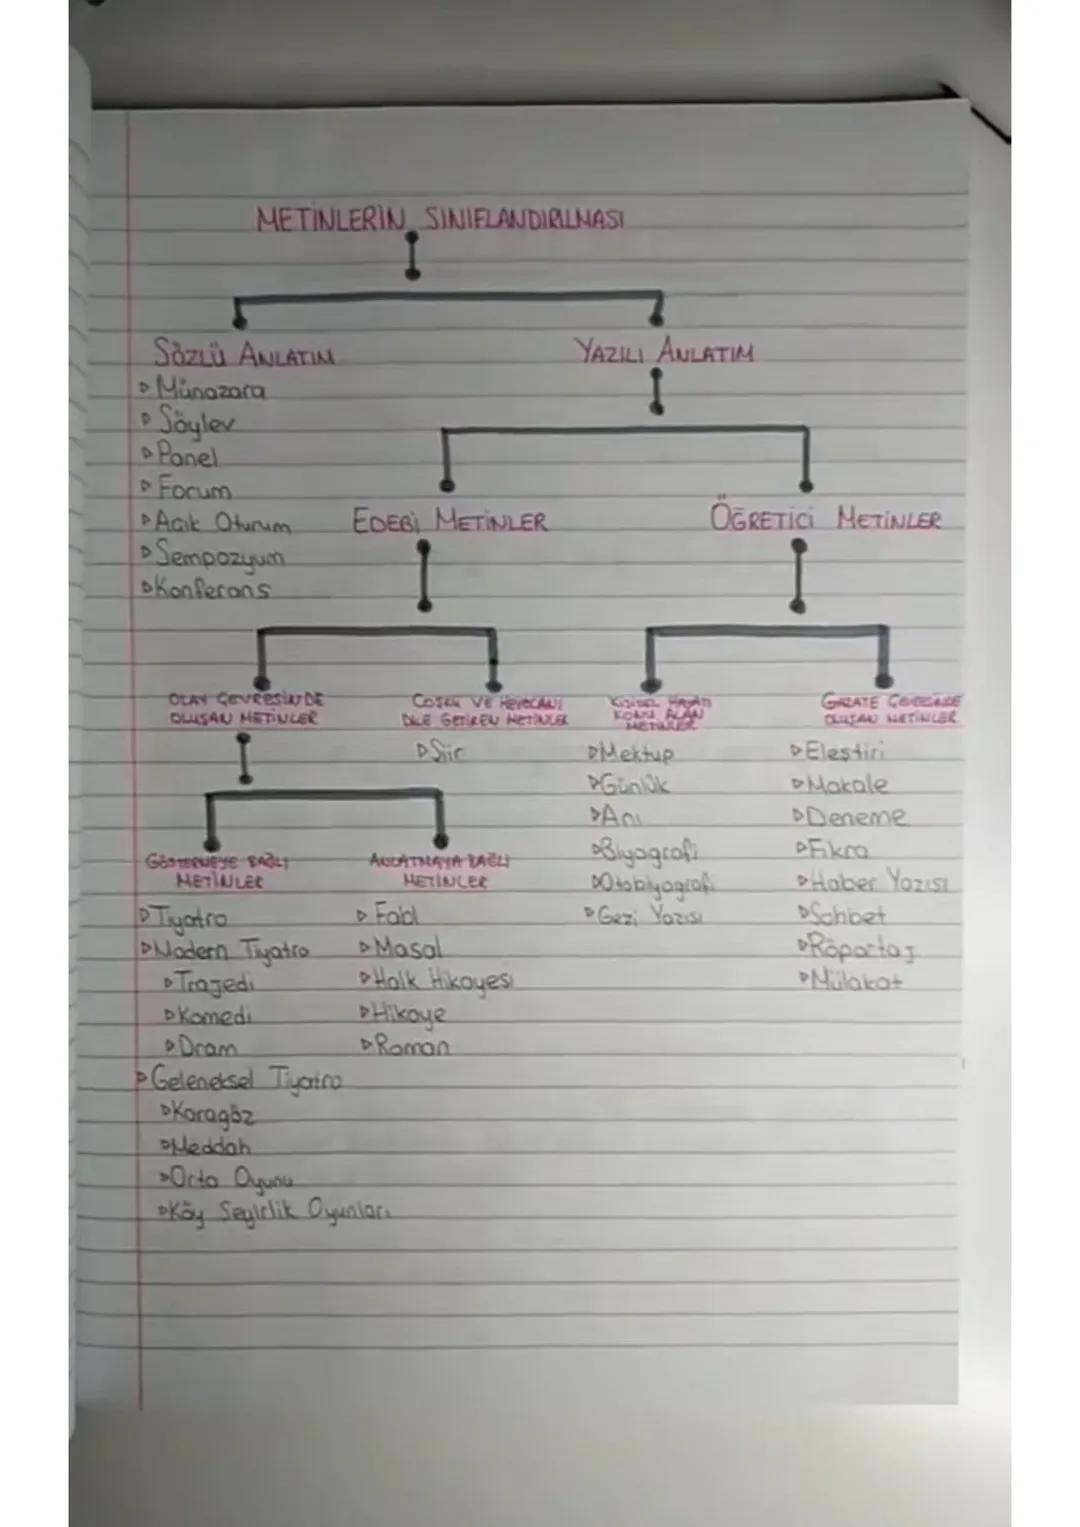 METİNLERİN SINIFLANDIRILMASI
SÖZLÜ ANLATIM
▹Münazara
▹Söylev
▹Panel
▹Forum
▹Açık Oturum
▹Sempozyum
▹Konferans
YAZILI ANLATIM
EDEBİ METİNLER
ÖĞRETİCİ METİNLER
OLAY ÇEVRESİNDE
OLUŞAN METİNLER
COŞKU VE HEYECANI
DİLE GETİREN METİNLER
▹Şiir
KİŞİSEL HAYATI
KONU ALAN
METİNLER
▹Mektup
▹Günlük
▹Anı
▹Biyografi
▹Otobiyografi
▹Gezi Yazısı
GAZATE ÇEVRESİNDE
OLUŞAN METİNLER
▹Eleştiri
▹Makale
▹Deneme
▹Fıkra
▹Haber Yazısı
▹Sohbet
▹Röportaj
▹Mülakat
GÖSTERMEYE BAĞLI
METİNLER
▹Tiyatro
▹Modern Tiyatro
▹Trajedi
▹Komedi
▹Dram
▹Geleneksel Tiyatro
▹Karagöz
▹Meddah
▹Orta Oyunu
▹Köy Seyirlik Oyunları
ANLATMAYA BAĞLI
METİNLER
▹Fabl
▹Masal
▹Halk Hikayesi
▹Hikaye
▹Roman